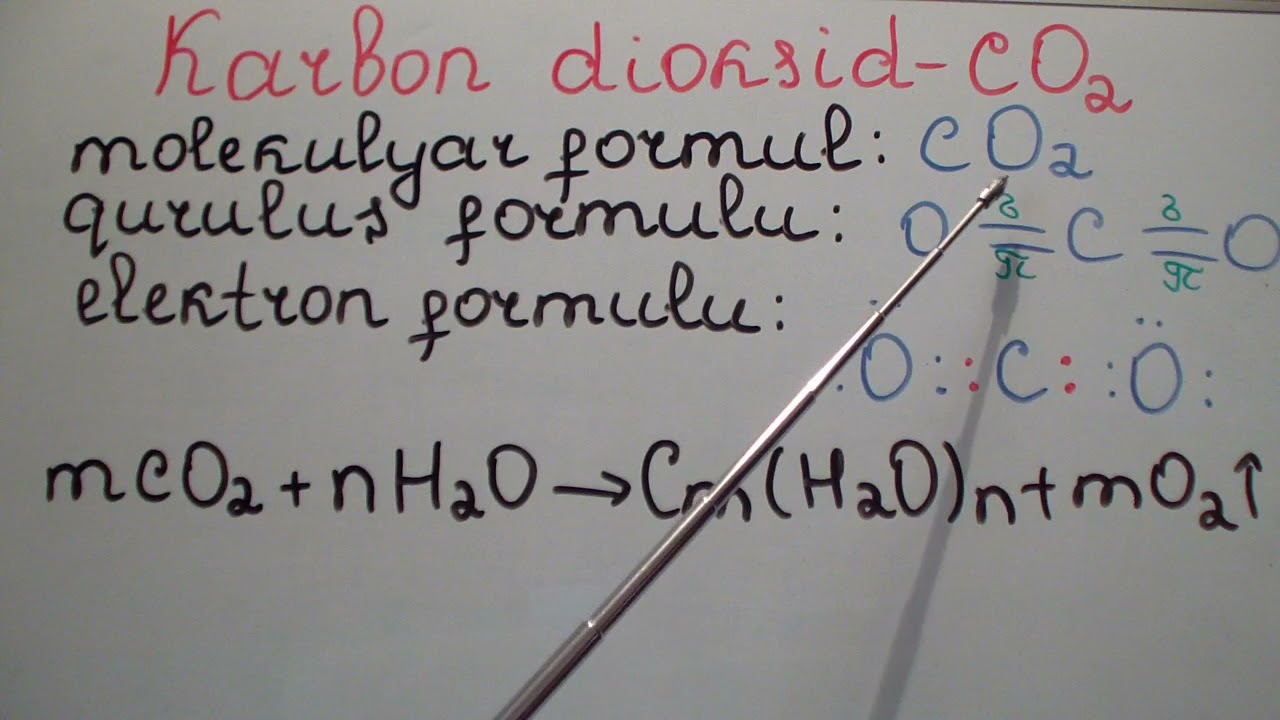 Karbon dioksid-CO₂
molekulyar formul: CO₂
quruluş formulu: O σ π C σ π O
elektron formulu:
:O::C::O:
mCO₂+nH₂O→Cm(H₂O)n+mO₂↑